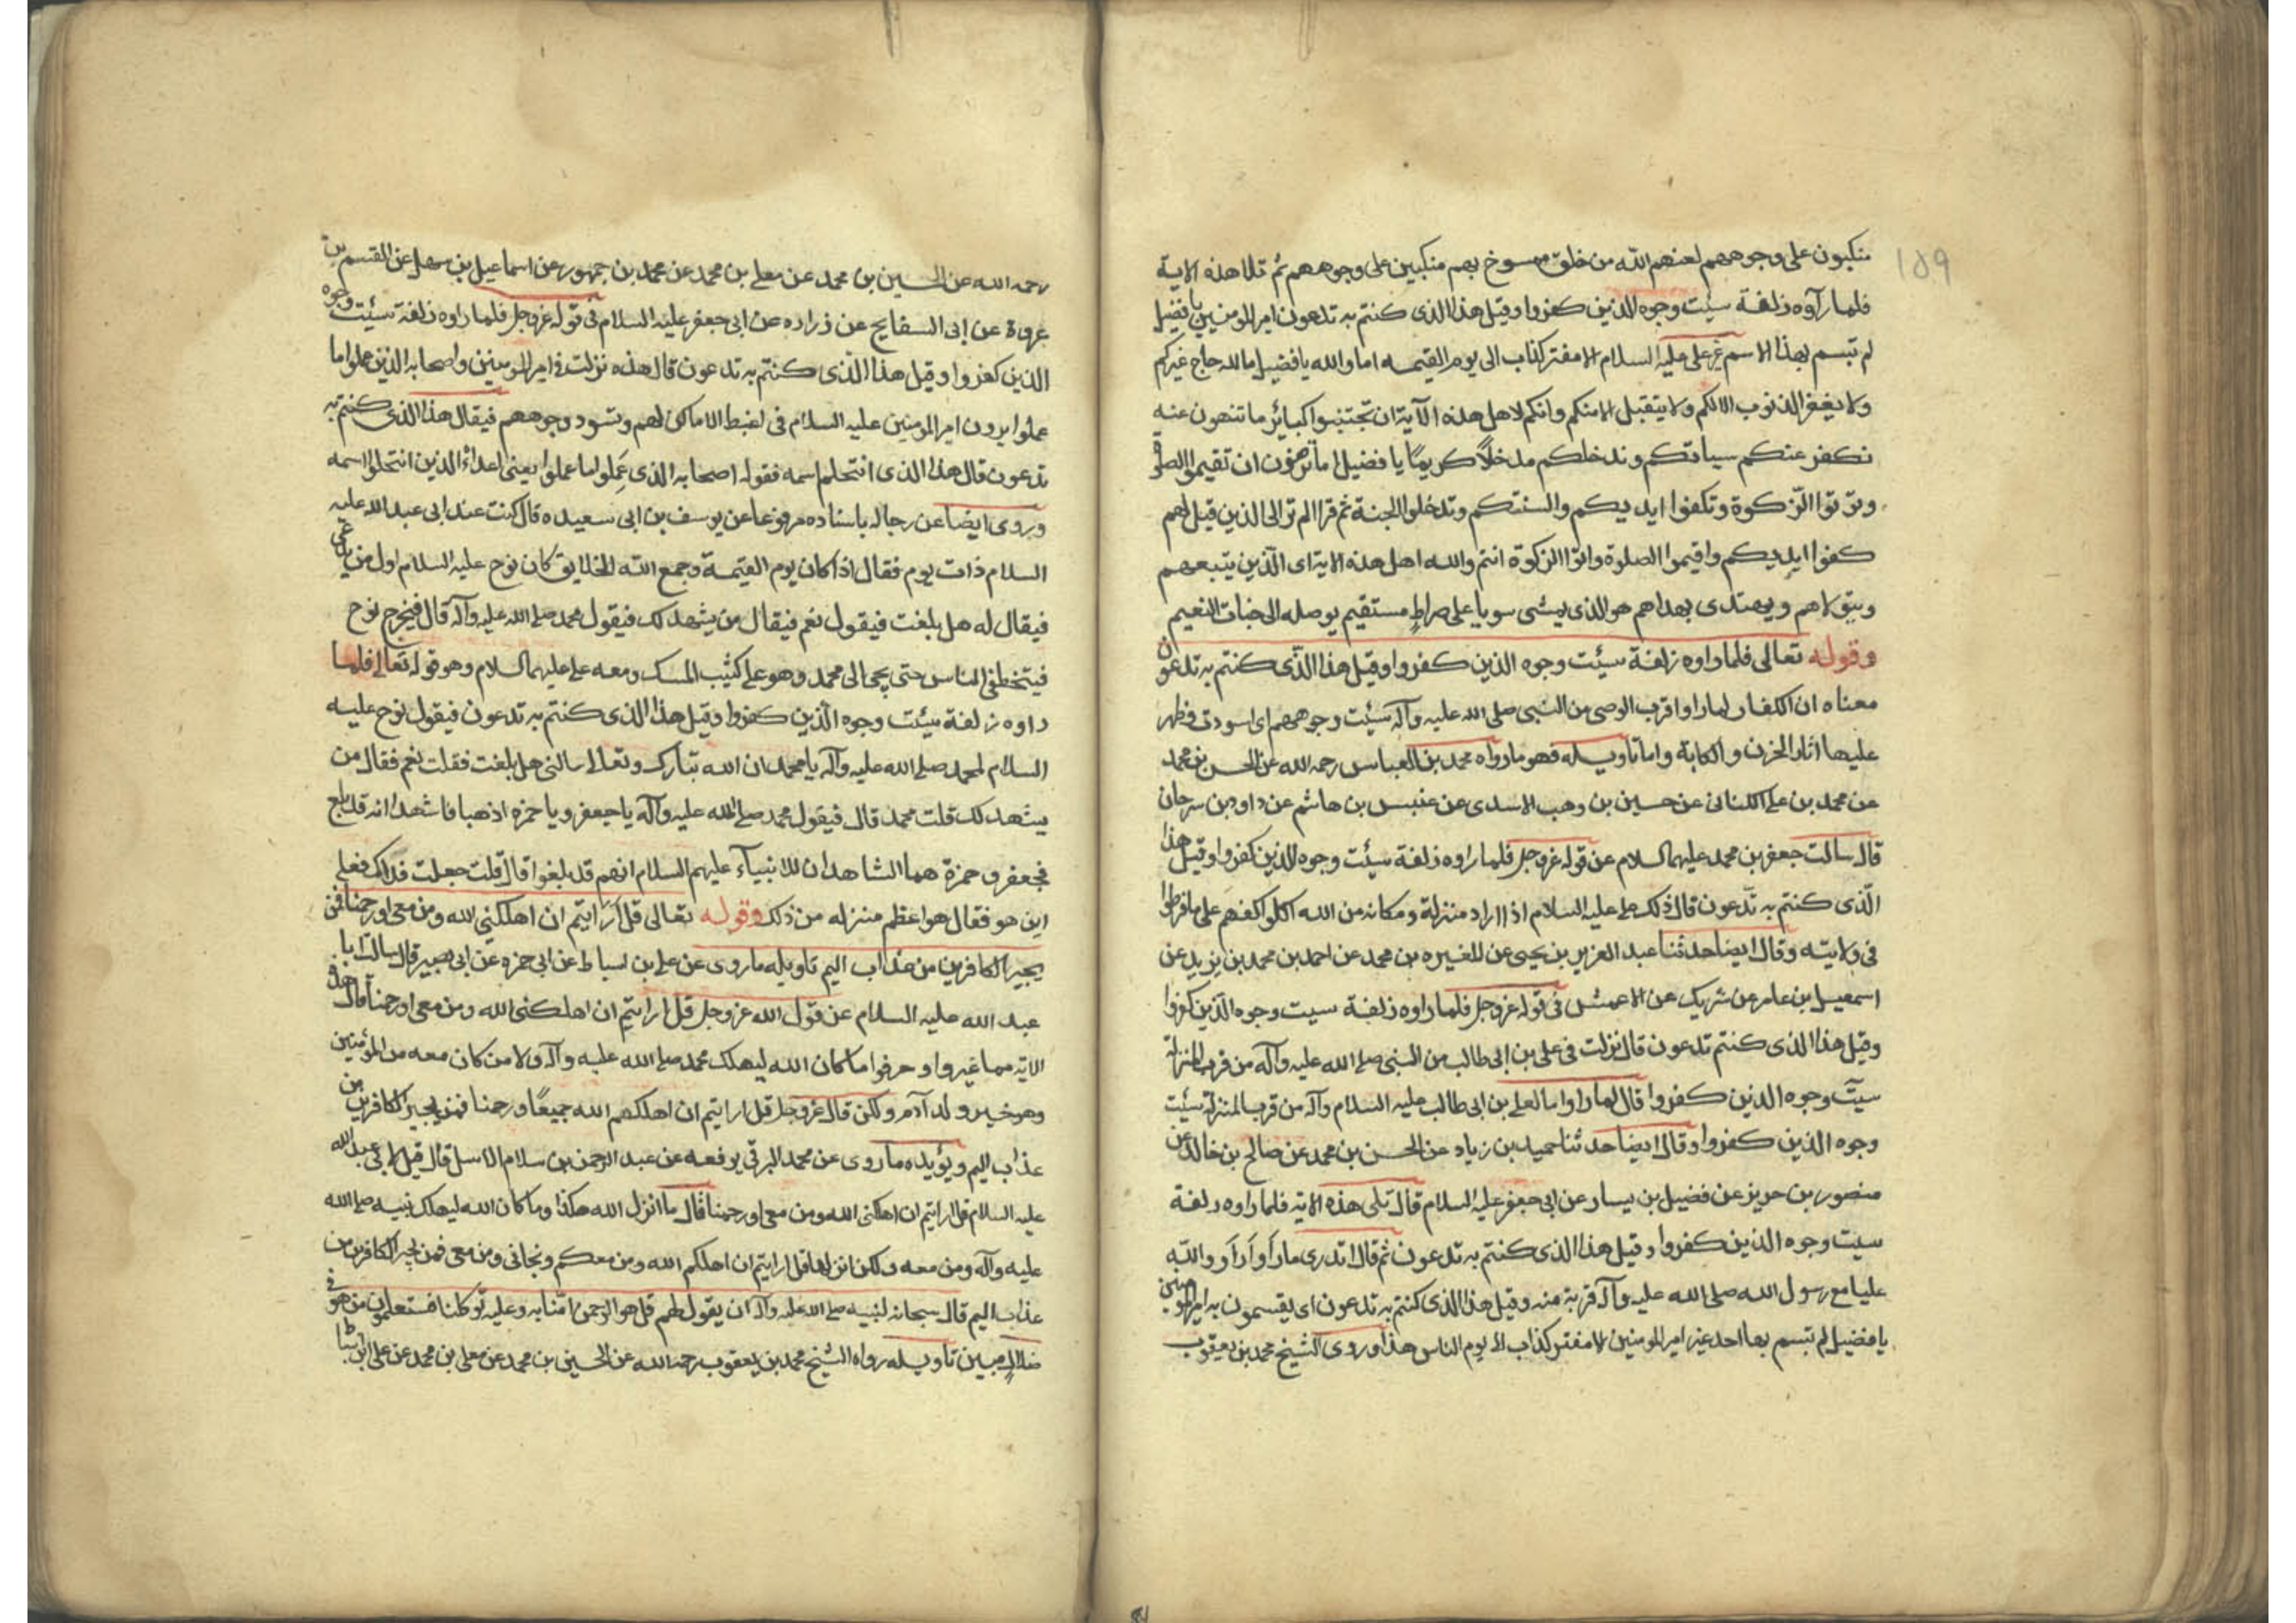 ١٥٩
منكبون على وجوههم لعنهم الله من خلق ممسوخ بهم منكبين على وجوههم ثم تلا هذه الاية
فلما رآوه زلفة سيئت وجوه الذين كفروا وقيل هذا الذى كنتم به تدعون امير المومنين يا فضيل
لم تبسم بهذا الاسم غير على عليه السلام الا مفتر كذاب الى يوم القيمه اما والله يا فضيل ما لله حاج غيركم
ولا يغفر الذنوب الا لكم ولا يتقبل الا منكم وانكم لاهل هذه الآية ان تجتنبوا كبائر ما تنهون عنه
نكفر عنكم سياتكم وندخلكم مدخلاً كريمًا يا فضيل اما ترضون ان تقيموا الصلوة
وتؤتوا الزكوة وتكفوا ايديكم والسنتكم وتدخلوا الجنة ثم قرا الم تر الى الذين قيل لهم
كفوا ايديكم واقيموا الصلوة واتوا الزكوة انتم والله اهل هذه الاية اى الّذين يتبعهم
ويتولاهم ويهتدى بهداهم هو الذى يمشى سويا على صراطٍ مستقيم يوصله الى جنات النعيم
وقوله تعالى فلما راوه زلفة سيئت وجوه الذين كفروا وقيل هذا الّذى كنتم به تدعون
معناه ان الكفار لما راوا قرب الوصى من النبى صلى الله عليه وآله سيئت وجوههم اى اسودت وظهر
عليها اثار الحزن والكابة واما تاويله فهو ما رواه محمد بن العباس رحمه الله عن الحسن بن محمد
عن محمد بن على الكنانى عن حسين بن وهب الاسدى عن عنبس بن هاشم عن داود بن سرحان
قال سالت جعفر بن محمد عليهما السلام عن قوله عز وجل فلما راوه زلفة سيئت وجوه الذين كفروا وقيل هذا
الّذى كنتم به تدّعون قال ذلك على عليه السلام اذا اراد منزلة ومكانه من الله اكلوا اكفهم على ما فرطوا
فى ولايته وقال ايضا حدثنا عبد العزيز بن يحيى عن المغيره بن محمد عن احمد بن محمد بن يزيد عن
اسمعيل بن عامر عن شريك عن الاعمش فى قوله عز وجل فلما راوه زلفة سيت وجوه الّذين كفروا
وقيل هذا الذى كنتم تدعون قال نزلت فى على بن ابى طالب من النبى صلى الله عليه وآله من قرب المنزلة
سيت وجوه الذين كفروا قال لما راوا ما لعلى بن ابى طالب عليه السلام وآله من قرب المنزلة سيئت
وجوه الذين كفروا وقال ايضا حدثنا حميد بن زياد عن الحسن بن محمد عن صالح بن خالد عن
منصور بن حريز عن فضيل بن يسار عن ابى جعفر عليه السلام قال تلى هذه الاية فلما راوه زلفة
سيت وجوه الذين كفروا وقيل هذا الذى كنتم به تدعون ثم قال اتدرى ما رأوا رأوا والله
عليا مع رسول الله صلى الله عليه وآله قربة منه وقيل هذا الذى كنتم به تدعون اى يقسمون به امير المومنين
يا فضيل لم تبسم بها احد غير امير المومنين الا مفتر كذاب الى يوم الناس هذا وروى الشيخ محمد بن يعقوب
رحمه الله عن الحسين بن محمد عن معلى بن محمد عن محمد بن جمهور عن اسماعيل بن سهل عن القسم بن
عروة عن ابى السفايج عن زراده عن ابى جعفر عليه السلام فى قوله عز وجل فلما راوه زلفة سيئت وجوه
الذين كفروا وقيل هذا الّذى كنتم به تدعون قال هذه نزلت فى امير المومنين واصحابه الذين عملوا ما
عملوا يرون امير المومنين عليه السلام فى اغبط الاماكن لهم وتسود وجوههم فيقال هذا الذى كنتم به
تدعون قال هذا الذى انتحلم اسمه فقوله اصحابه الذى عَمِلوا ما عملوا يعنى اعداءُ الذين انتحلوا اسمه
وروى ايضا عن رجاله باسناده مرفوعا عن يوسف بن ابى سعيده قال كنت عند ابى عبد الله عليه
السلام ذات يوم فقال اذا كان يوم القيمة وجمع الله الخلايق كان نوح عليه السلام اول من يدعى
فيقال له هل بلغت فيقول نعم فيقال من يشهد لك فيقول محمد صلى الله عليه وآله قال فيخرج نوح
فيتخطى الناس حتى يجى الى محمد وهو على كثيب المسك ومعه على عليهما السلام وهو قوله تعالى فلما
داوه زلفة سيئت وجوه الّذين كفروا وقيل هذا الذى كنتم به تدعون فيقول نوح عليه
السلام لمحمد صلى الله عليه وآله يا محمد ان الله تبارك وتعالى سالنى هل بلغت فقلت نعم فقال من
يشهد لك قلت محمد قال فيقول محمد صلى الله عليه وآله يا جعفر ويا حمزه اذهبا فاشهدا انه قد بلغ
فجعفر وحمزة هما الشاهدان للانبيآء عليهم السلام انهم قد بلغوا قال قلت جعلت فداك فعلى
اين هو فقال هو اعظم منزله من ذلك وقوله تعالى قل أرايتم ان اهلكنى الله ومن معى او رحمنا فمن
يجير الكافرين من عذاب اليم تاويله ما روى عن على بن اسباط عن ابى حمزه عن ابى بصير قال سالت ابا
عبد الله عليه السلام عن قول الله عز وجل قل ارايتم ان اهلكنى الله ومن معى او رحمنا قال هذه
الاية مما غيروا وحرفوا ما كان الله ليهلك محمد صلى الله عليه وآله ولا من كان معه من المؤمنين
وهو خير ولد آدم ولكن قال عز وجل قل ارايتم ان اهلكهم الله جميعًا ورحمنا فمن يجير الكافرين من
عذاب اليم ويؤيده ما روى عن محمد البرقى يرفعه عن عبد الرحمن بن سلام الاسل قال قيل لابى عبد الله
عليه السلام قل ارايتم ان اهلكنى الله ومن معى او رحمنا قال ما انزل الله هكذا وما كان الله ليهلك نبيه صلى الله
عليه وآله ومن معه ولكن انزلها قل ارايتم ان اهلكم الله ومن معكم ونجانى ومن معى فمن يجير الكافرين من
عذاب اليم قال سبحانه لنبيه صلى الله عليه وآله ان يقول لهم قل هو الرحمن امنا به وعليه توكلنا فستعلمون من هو فى
ضلالٍ مبين تاويله رواه الشيخ محمد بن يعقوب رحمه الله عن الحسين بن محمد عن معلى بن محمد عن على بن اسباط